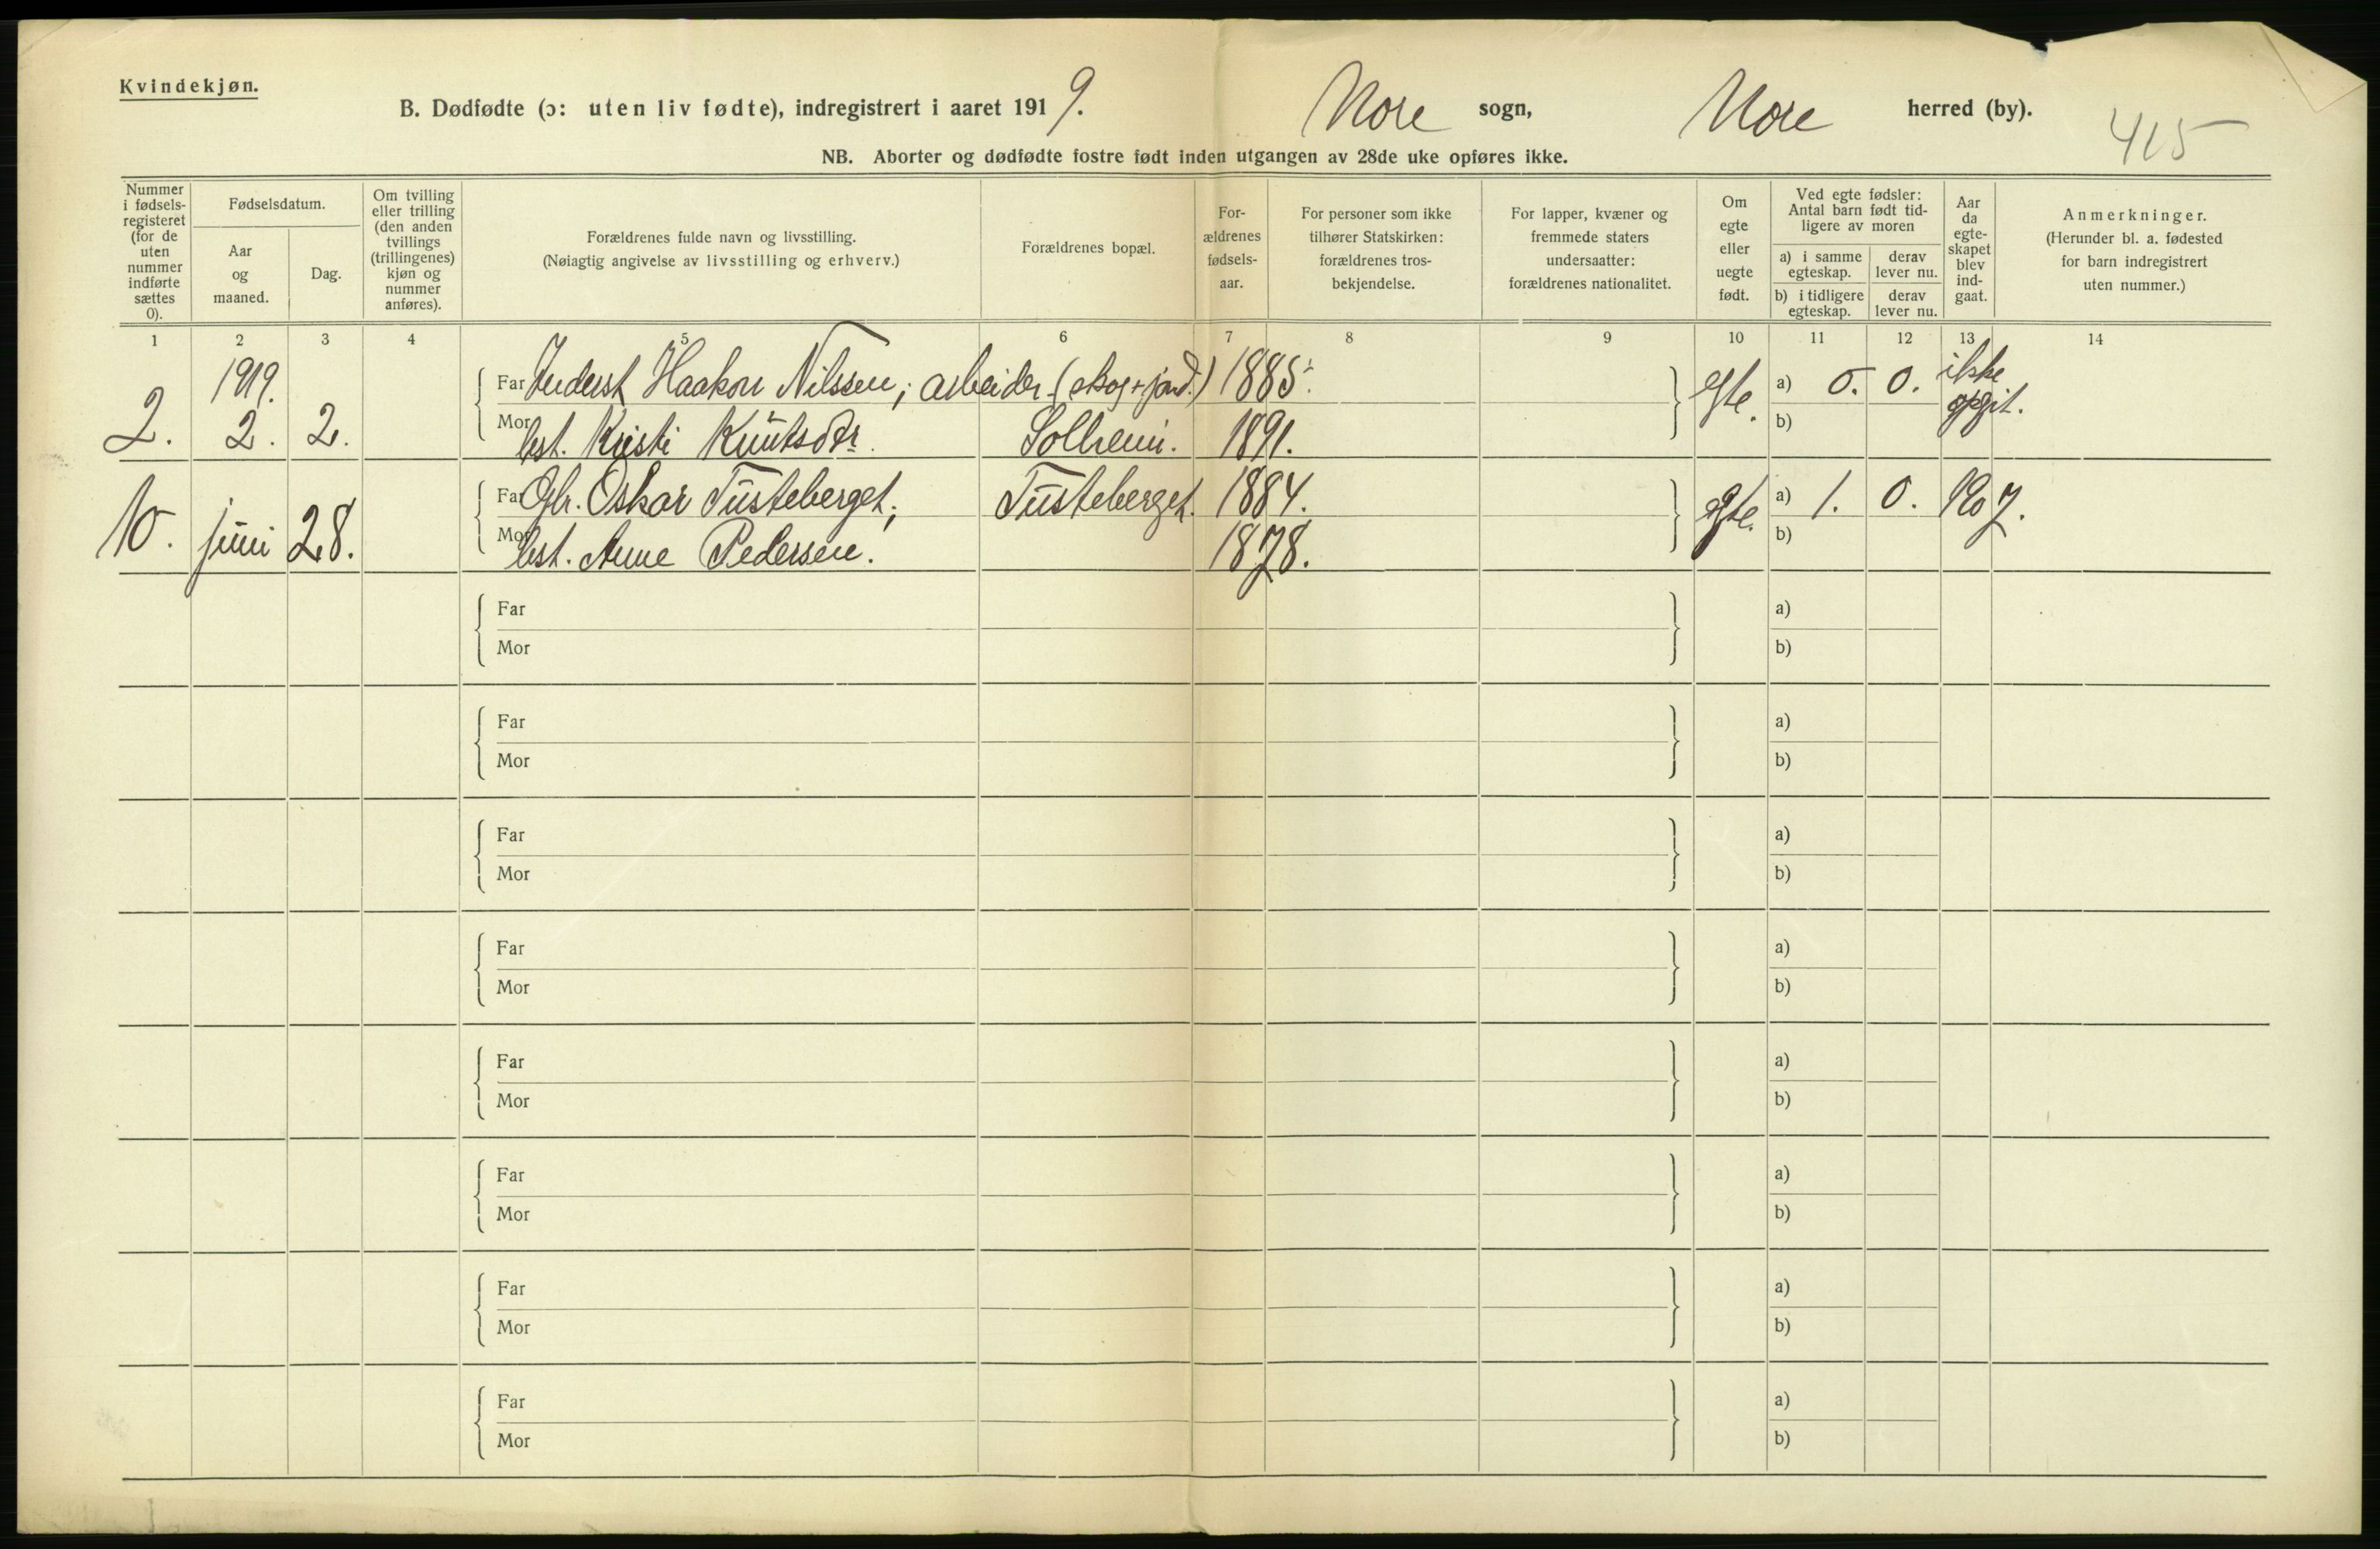 Kvindekjøn.
B. Dødfødte (ɔ: uten liv fødte), indregistrert i aaret 1919. Nore sogn, Nore herred (by).
415
NB. Aborter og dødfødte fostre født inden utgangen av 28de uke opføres ikke.
Nummer i fødsels-registeret (for de uten nummer indførte sættes 0).
Fødselsdatum.
Aar og maaned.
Dag.
Om tvilling eller trilling (den anden tvillings (trillingenes) kjøn og nummer anføres).
Forældrenes fulde navn og livsstilling.
(Nøiagtig angivelse av livsstilling og erhverv.)
Forældrenes bopæl.
For-ældrenes fødsels-aar.
For personer som ikke tilhører Statskirken: forældrenes tros-bekjendelse.
For lapper, kvæner og fremmede staters undersaatter: forældrenes nationalitet.
Om egte eller uegte født.
Ved egte fødsler: Antal barn født tid-ligere av moren
a) i samme egteskap.
derav lever nu.
b) i tidligere egteskap.
derav lever nu.
Aar da egte-skapet blev ind-gaat.
Anmerkninger.
(Herunder bl. a. fødested for barn indregistrert uten nummer.)
1 2 3 4 5 6 7 8 9 10 11 12 13 14
1919.
Far Inderst Haakon Nilssen, arbeider (skog + jord.) 1885. egte. a) 0. 0. ikke opgit.
2. 2. 2. Mor hst. Kristi Knutsdtr. Solheim. 1891. b)
Far Gbr. Oskar Tusteberget, Tusteberget. 1884. egte. a) 1. 0. 1907.
10. juni 28. Mor hst. Anne Pedersen. 1878. b)
Far a)
Mor b)
Far a)
Mor b)
Far a)
Mor b)
Far a)
Mor b)
Far a)
Mor b)
Far a)
Mor b)
Far a)
Mor b)
Far a)
Mor b)